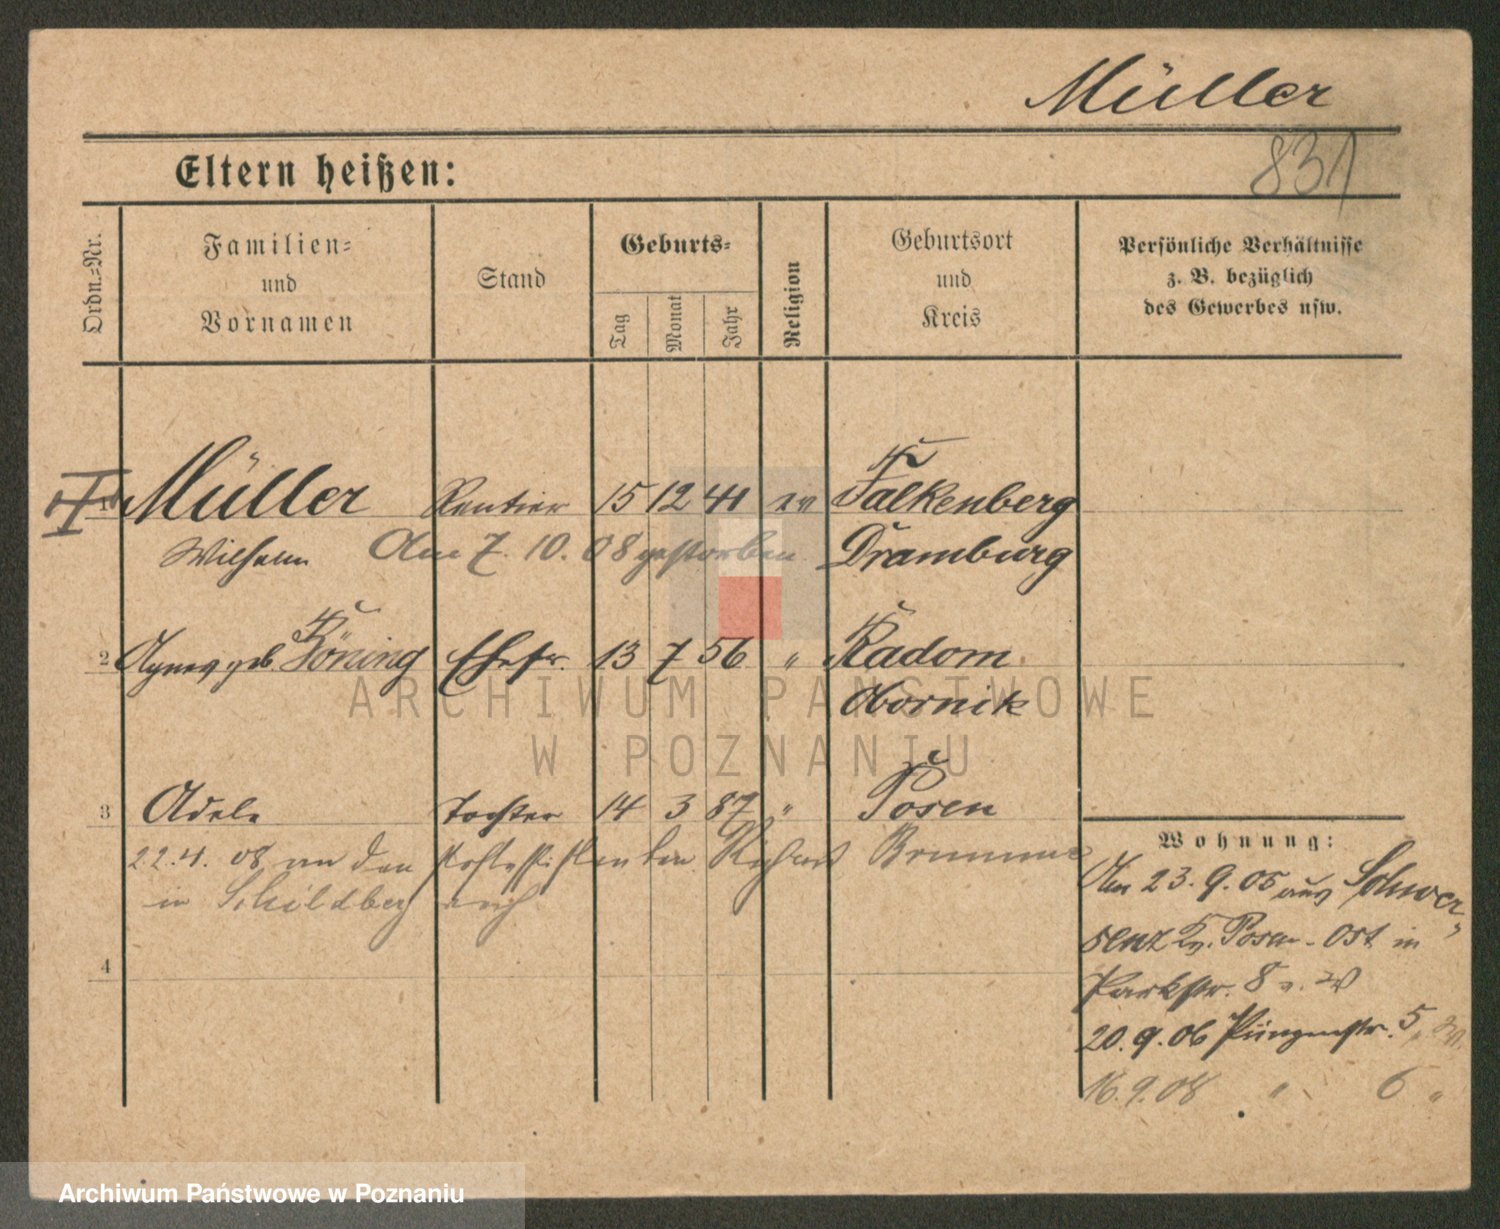 Müller
831
Eltern heißen:
Ordn.-Nr.
Familien-
und
Vornamen
Stand
Geburts-
Tag
Monat
Jahr
Religion
Geburtsort
und
Kreis
Persönliche Verhältnisse
z. B. bezüglich
des Gewerbes usw.
1 Müller Rentier 15 12 41 ev Falkenberg
Wilhelm Am 7. 10. 08 gestorben Dramburg
2 Agnes geb. Böning Ehefr. 13 7 56 " Radom
Obornik
ARCHIWUM PAŃSTWOWE
W POZNANIU
3 Adele Tochter 14 3 87 " Posen
22.4. 08 an den Richard
in Schildberg
4
Wohnung:
Am 23. 9. 05 aus Schwer-
senz Kr. Posen-Ost in
Parkstr. 8
20. 9. 06 5
16. 9. 08 " 6 "
Archiwum Państwowe w Poznaniu